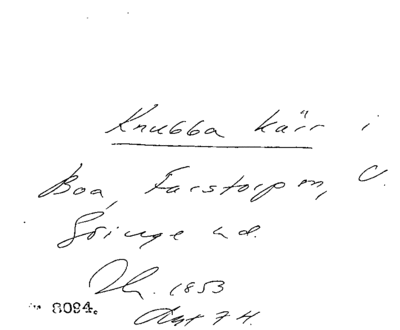 Knubba kärr i
Boa, Farstorp sn, V.
Göinge hd.
1853
8094.